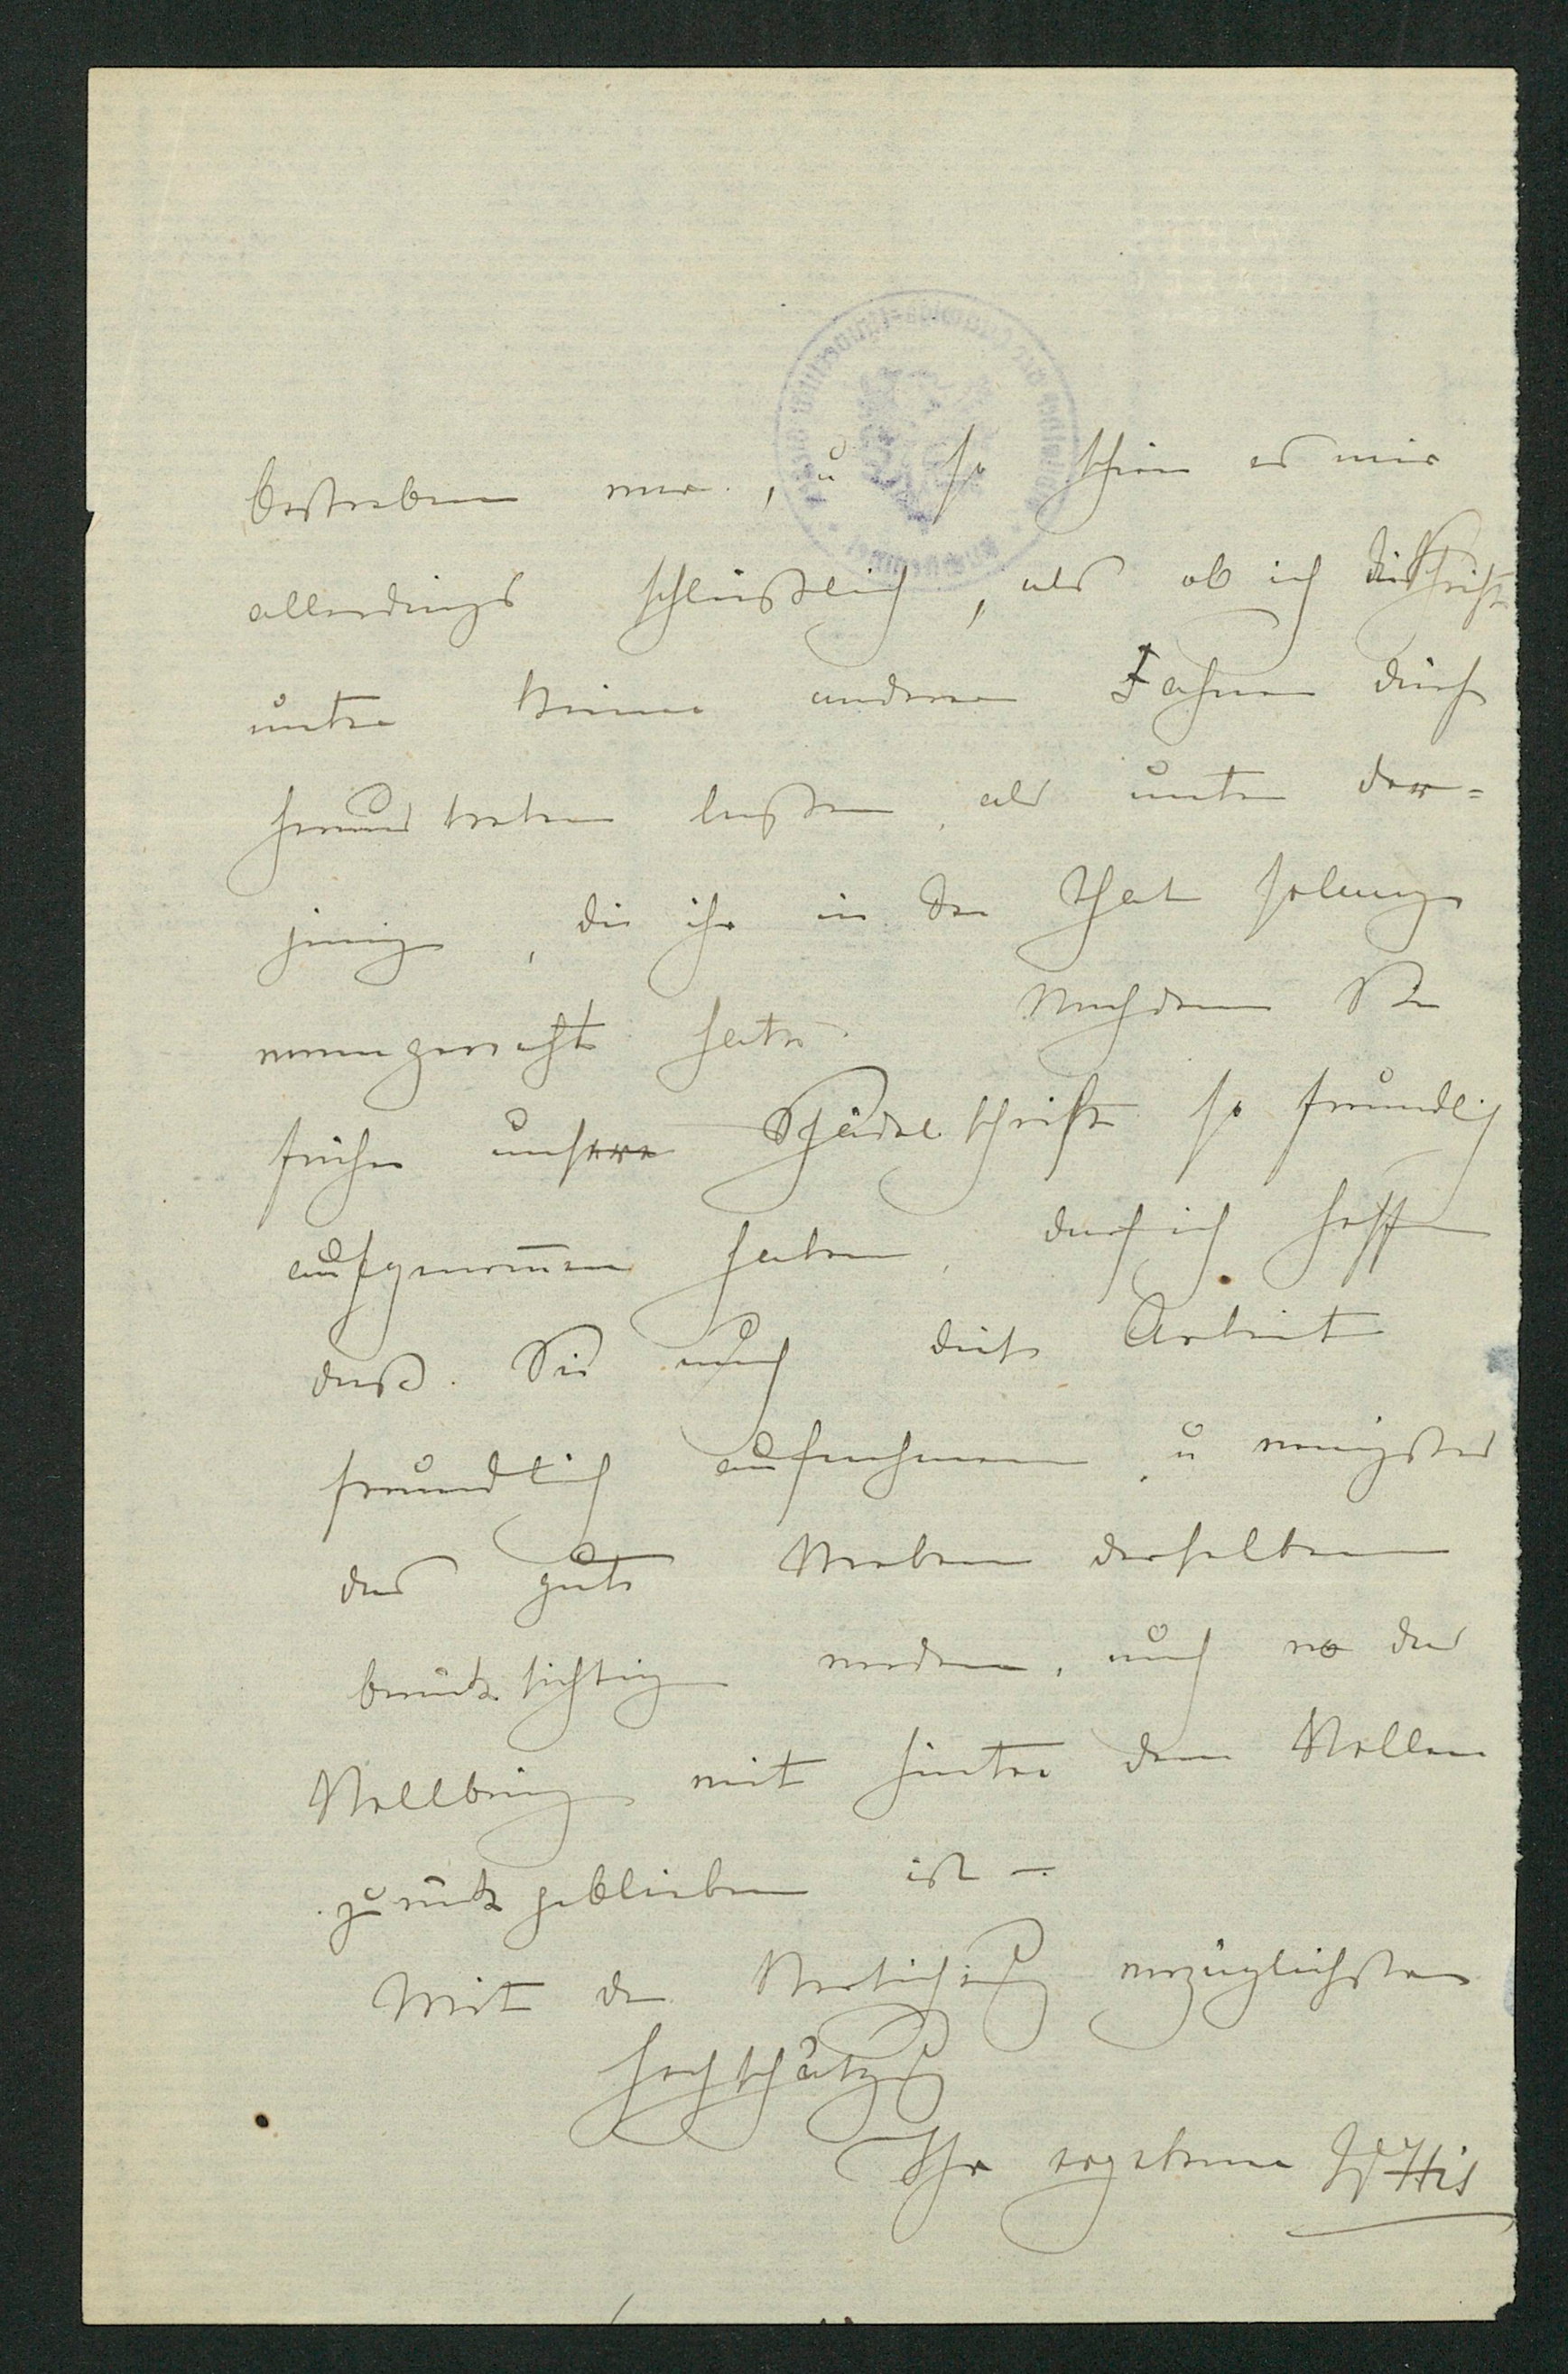 bestreben war, u so schien es mir
allerdings schließlich, als ob ich die Schrift
unter keiner anderen Fahne dürfe
heraustreten lassen, als unter der=
jenigen, die ihr in der That solange
vorangeweht hatte. Nachdem Sie
früher unsere Schädelschrift so freundlich
aufgenom̄en haben, darf ich hoffen
daß Sie auch diese Arbeit
freundlich aufnehmen u wenigstens
das gute Streben derselben
berücksichtigen werden, auch wo das
Vollbringen weit hinter dem Wollen
zurückgeblieben ist –.
Mit der Versicherung vorzüglichster
Hochschätzung
Ihr ergebener WHis